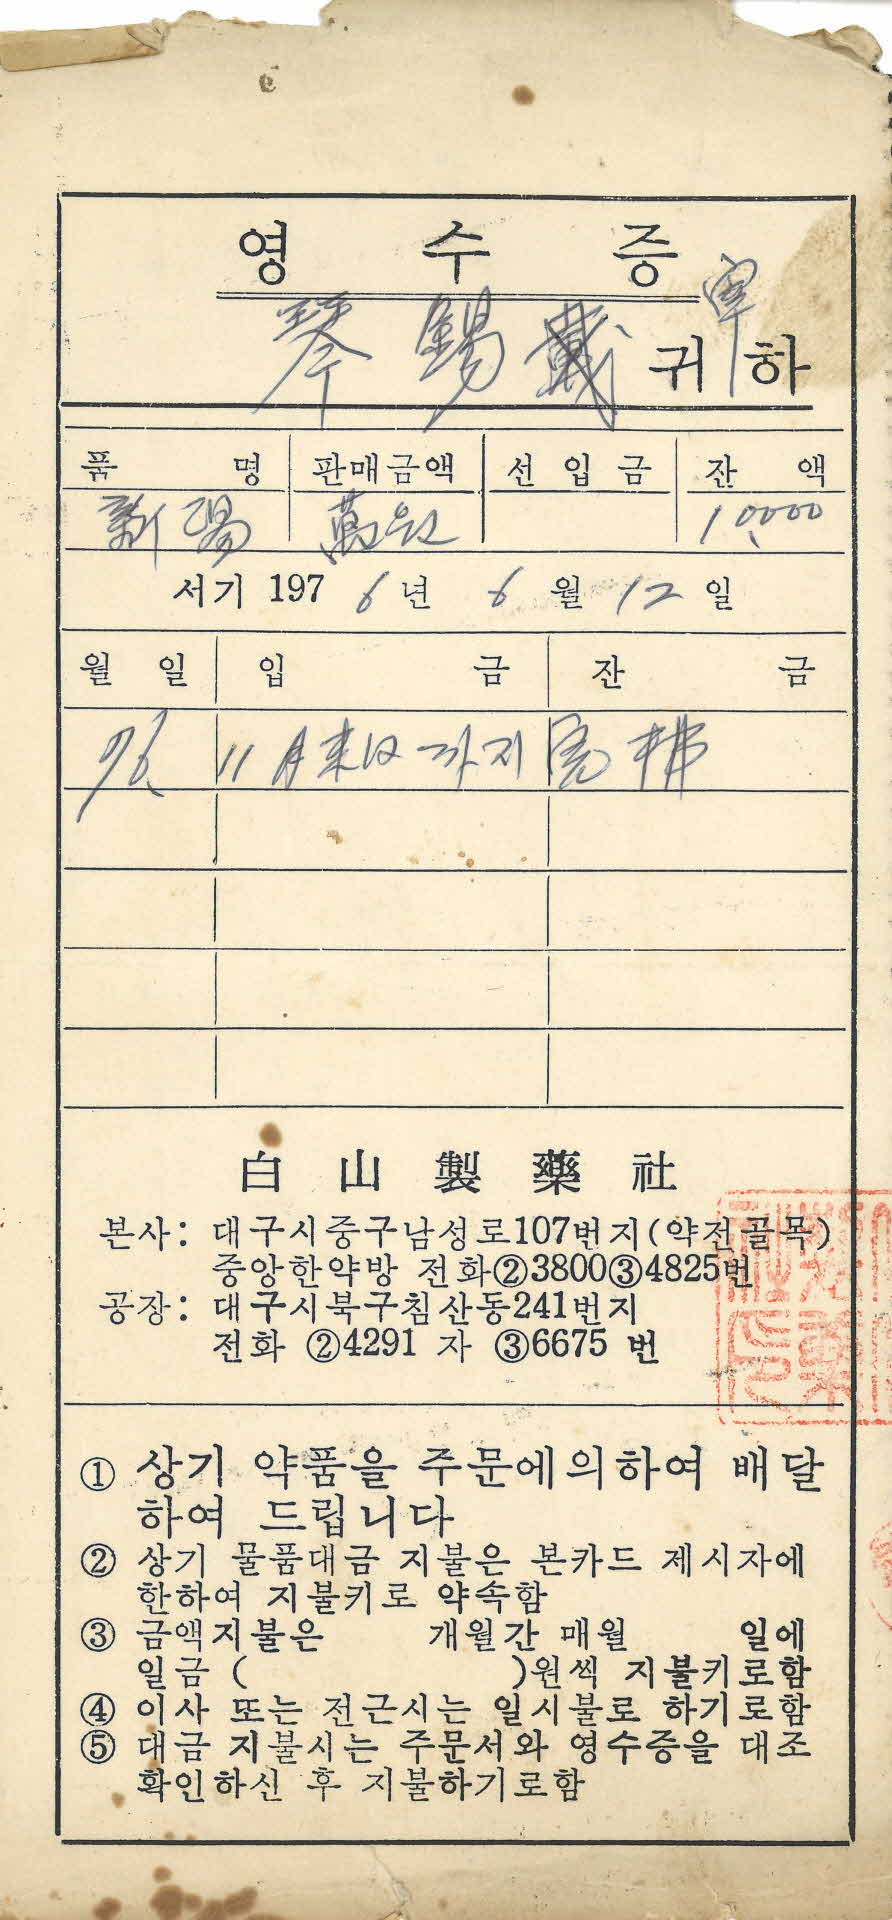 영 수 증
琴 錫 宰 귀 하
품 명 판매금액 선 입 금 잔 액
萬원 10,000
서기 1976년 6월 12일
월 일 입 금 잔 금
76. 11月末日 까지 完拂
白 山 製 藥 社
본사: 대구시중구남성로107번지(약전골목)
중앙한약방 전화②3800③4825번
공장: 대구시북구침산동241번지
전화 ②4291 자 ③6675 번
① 상기 약품을 주문에의하여 배달
하여 드립니다
② 상기 물품대금 지불은 본카드 제시자에
한하여 지불키로 약속함
③ 금액지불은 개월간 매월 일에
일금 ( )원씩 지불키로함
④ 이사 또는 전근시는 일시불로 하기로함
⑤ 대금 지불시는 주문서와 영수증을 대조
확인하신 후 지불하기로함